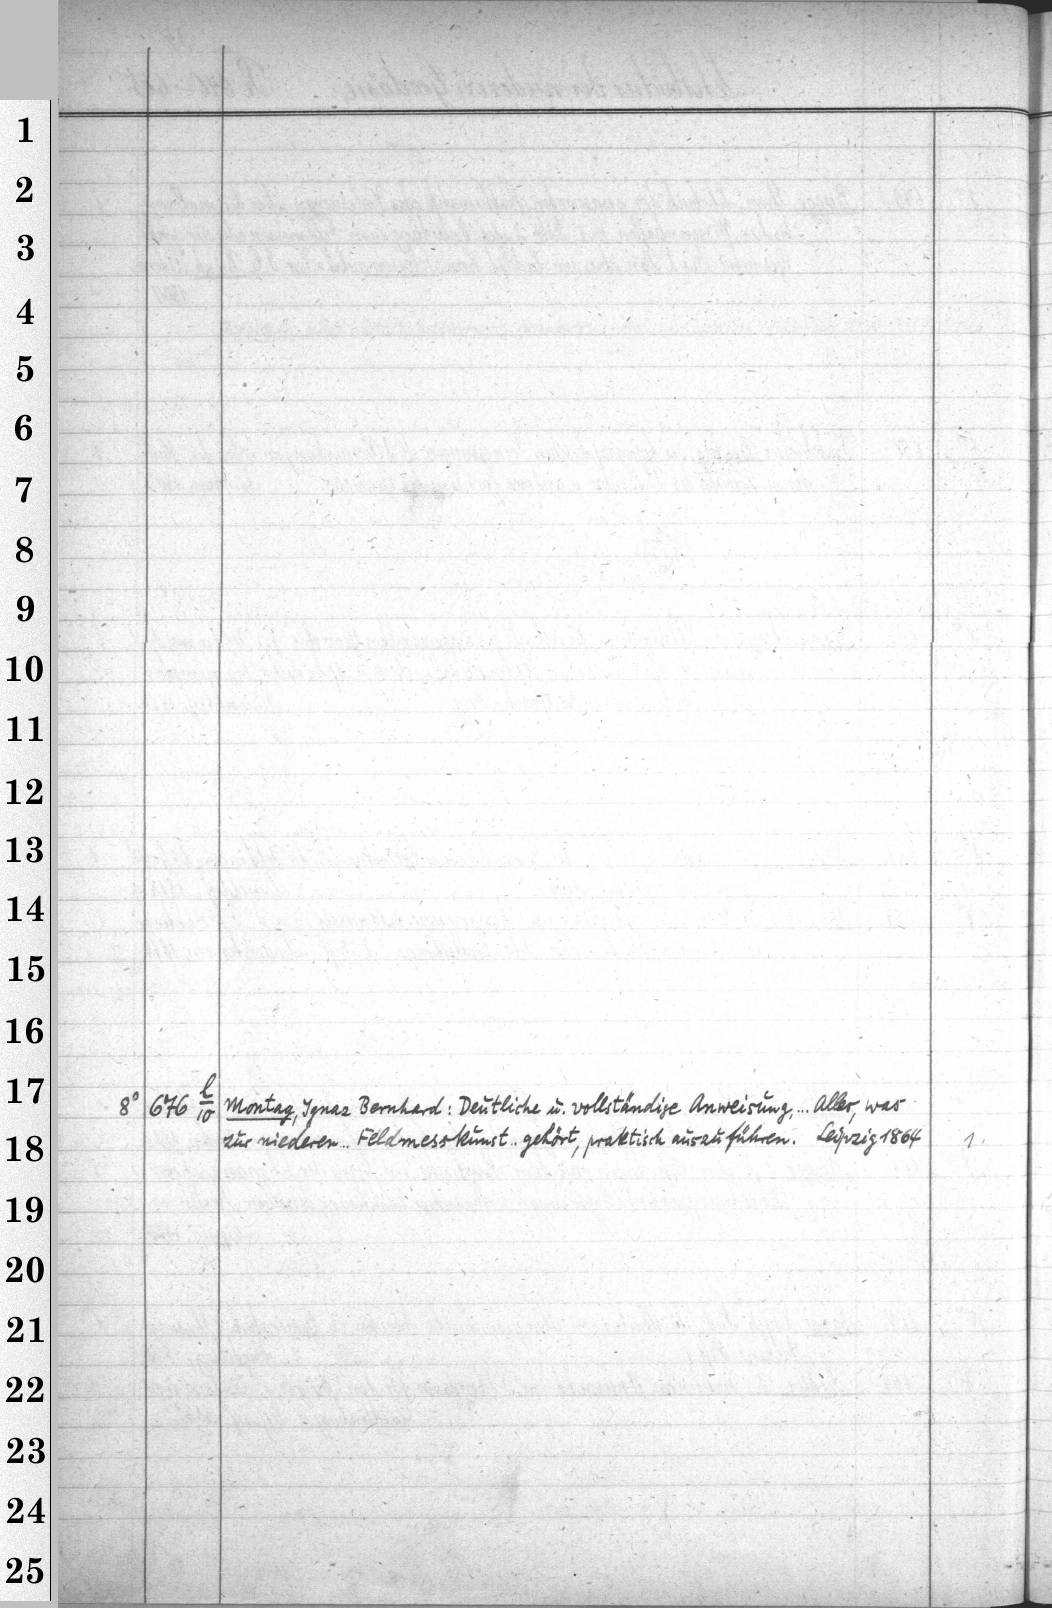 1
2
3
4
5
6
7
8
9
10
11
12
13
14
15
16
17
8° 676 l/10 Montag, Ignaz Bernhard: Deutliche u. vollständige Anweisung,... Alles, was
18
zur niederen.. Feldmesskunst.. gehört, praktisch auszuführen. Leipzig 1864 1.
19
20
21
22
23
24
25